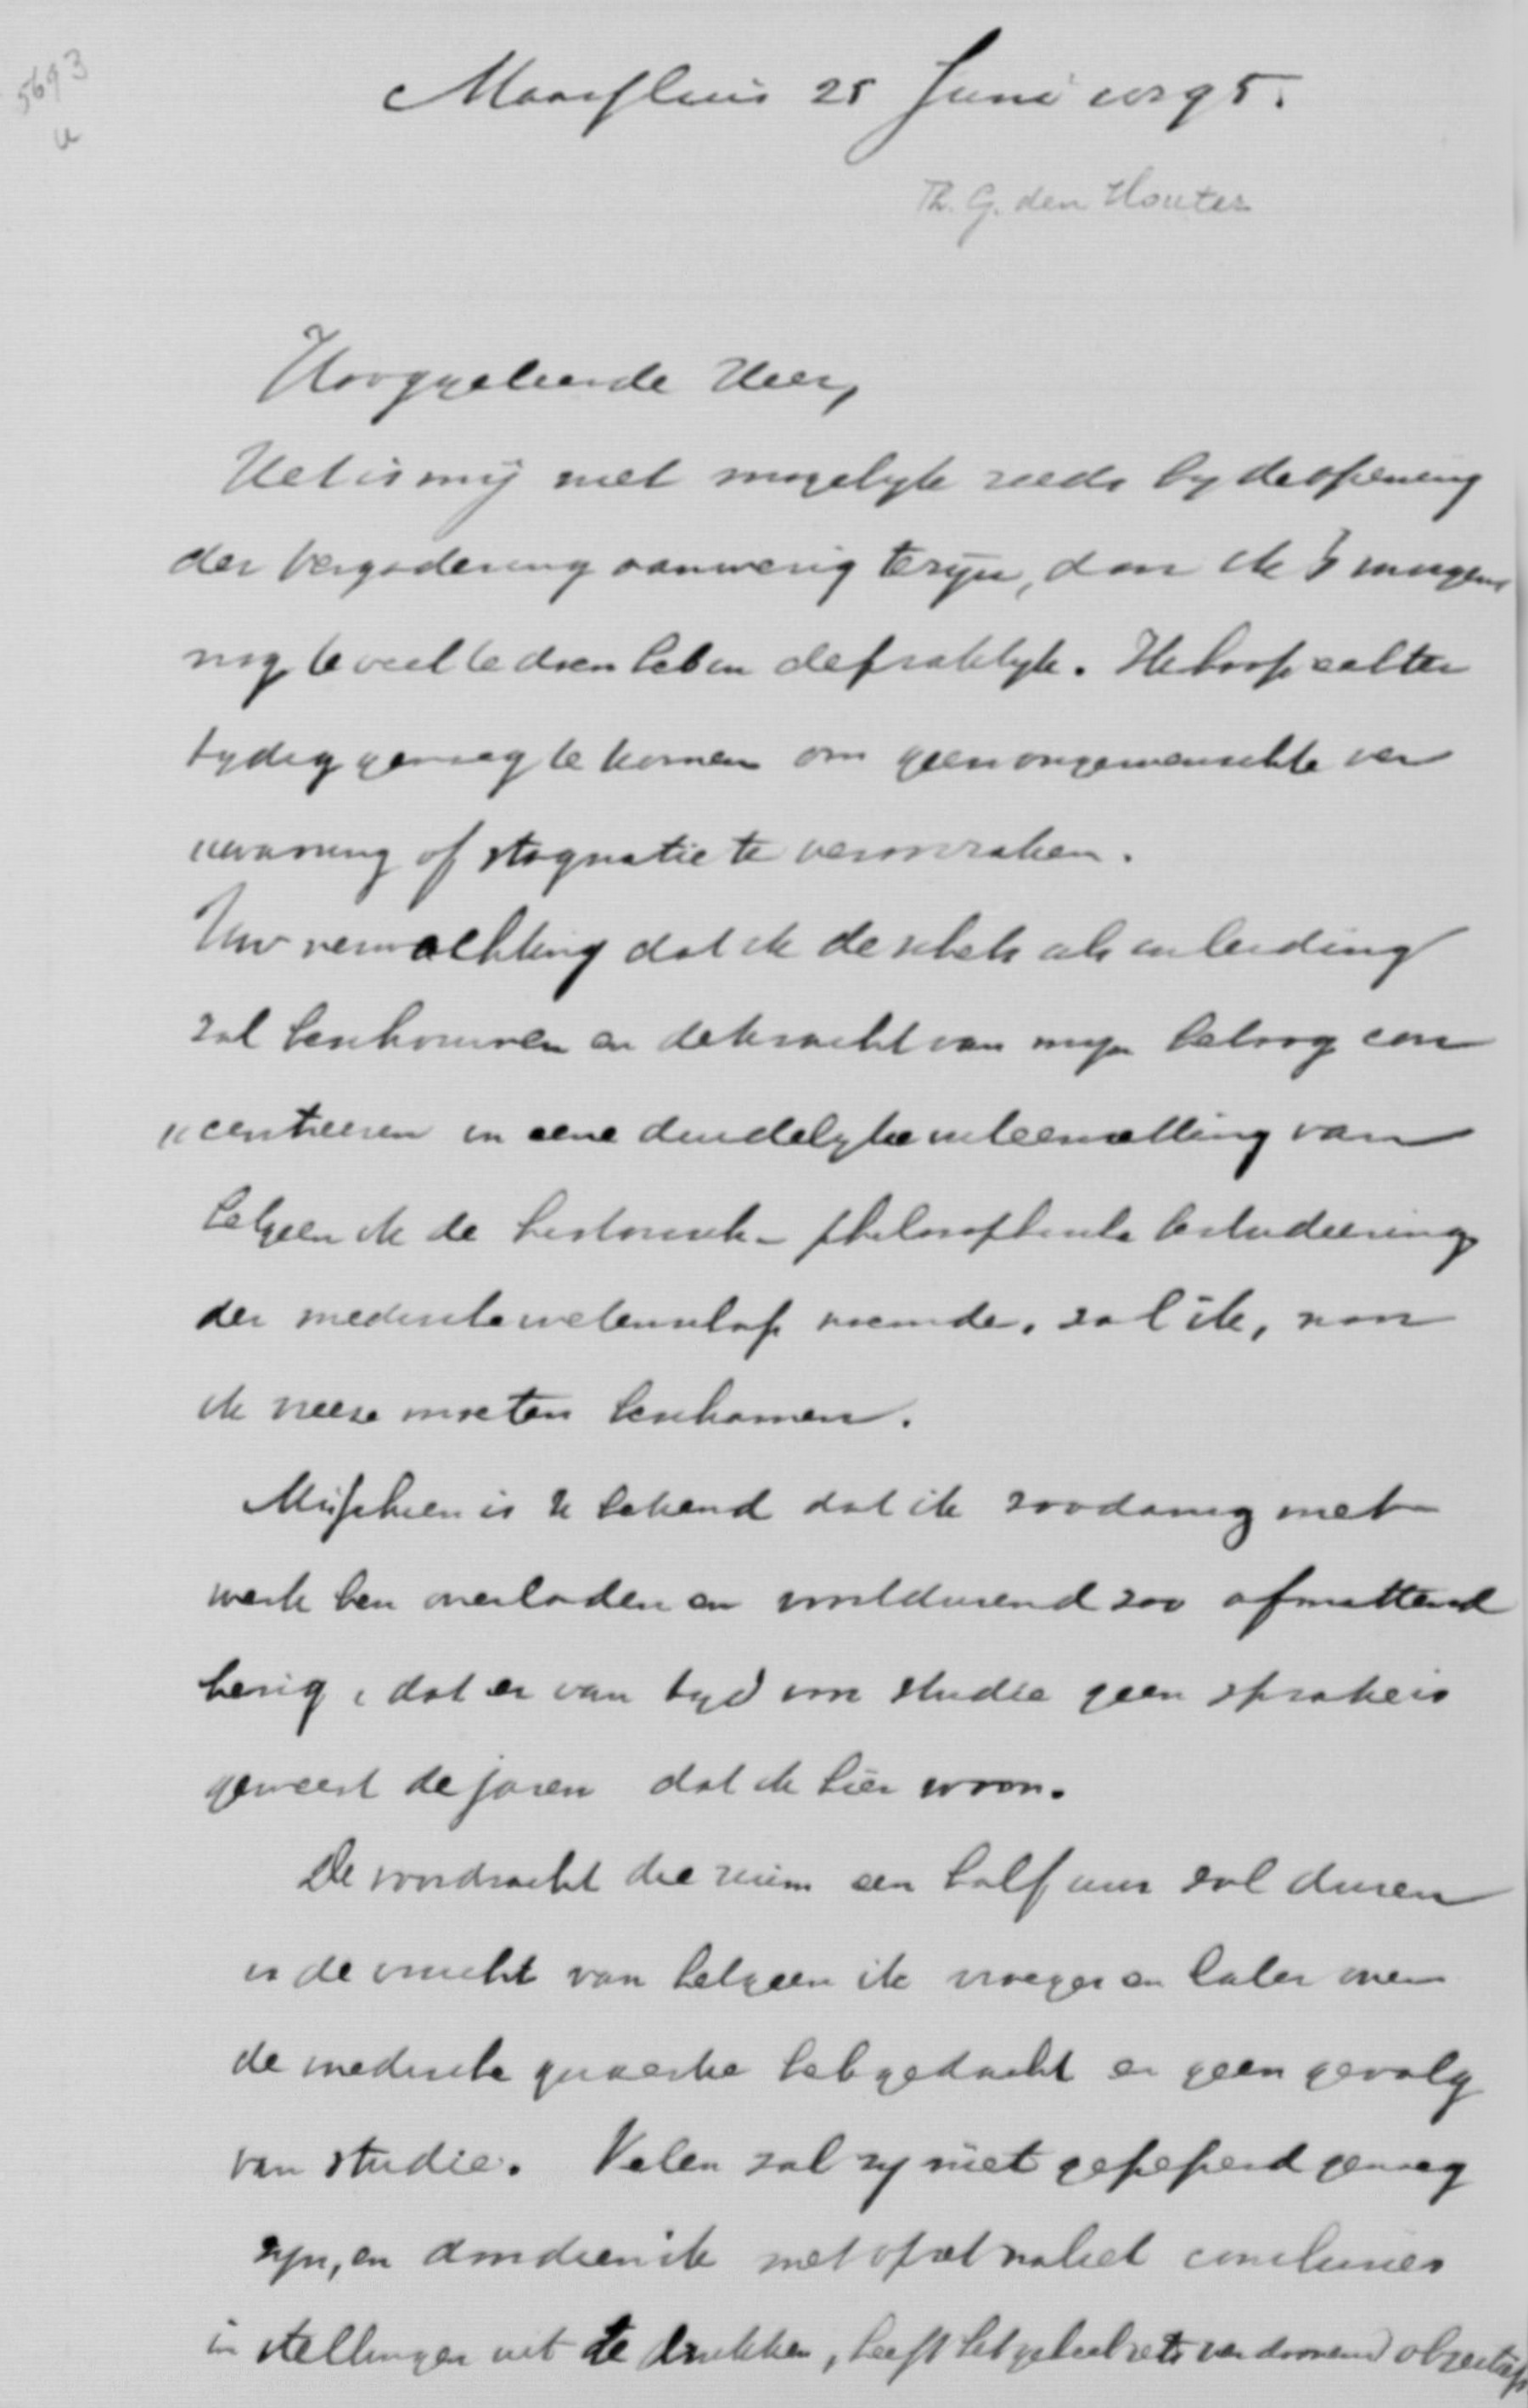 5693
u
Maassluis 25 Juni 1895.
Th. G. den Houter
Hooggeleerde Heer,
Het is mij niet mogelyk reeds by de opening
der vergadering aanwezig te zyn, daar ik 's morgens
nog te veel te doen heb in de praktyk. Ik hoop echter
tydig genoeg te komen om geen ongewenschte ver
warring of stagnatie te veroorzaken.
Uw verwachting dat ik de schets als inleiding
zal beschouwen en de kracht van myn betoog con
"centreeren in eene duidelyke uiteenzetting van
hetgeen ik de historisch-philosophische bestudeering
der medische wetenschap noemde, zal ik, naar
ik vreeze moeten beschamen.
Misschien is U bekend dat ik zoodanig met
werk ben overladen en voortdurend zoo afmattend
bezig, dat er van tyd voor studie geen sprake is
geweest de jaren dat ik hier woon.
De voordracht die ruim een half uur zal duren
is de vrucht van hetgeen ik vroeger en later over
de medische quaestie heb gedacht en geen gevolg
van studie. Velen zal zy niet gepeperd genoeg
zyn, en doordien ik met opzet naliet conclusies
in stellingen uit te drukken, heeft het geheel iets van doorend objectiefs